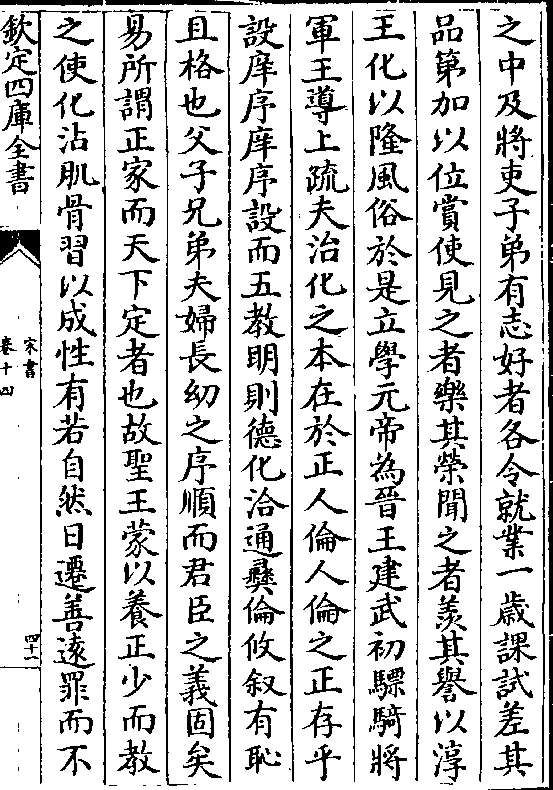 之中及將吏子弟有志好者各令就業一歲課試差其
品第加以位賞使見之者樂其榮聞之者羨其譽以淳
王化以隆風俗於是立學元帝為晉王建武初驃騎將
軍王導上疏夫治化之本在於正人倫人倫之正存乎
設庠序庠序設而五教明則德化洽通彝倫攸叙有恥
且格也父子兄弟夫婦長幼之序順而君臣之義固矣
易所謂正家而天下定者也故聖王蒙以養正少而教
之使化沾肌骨習以成性有若自然日遷善遠罪而不
欽定四庫全書
宋書
卷十四
四十一